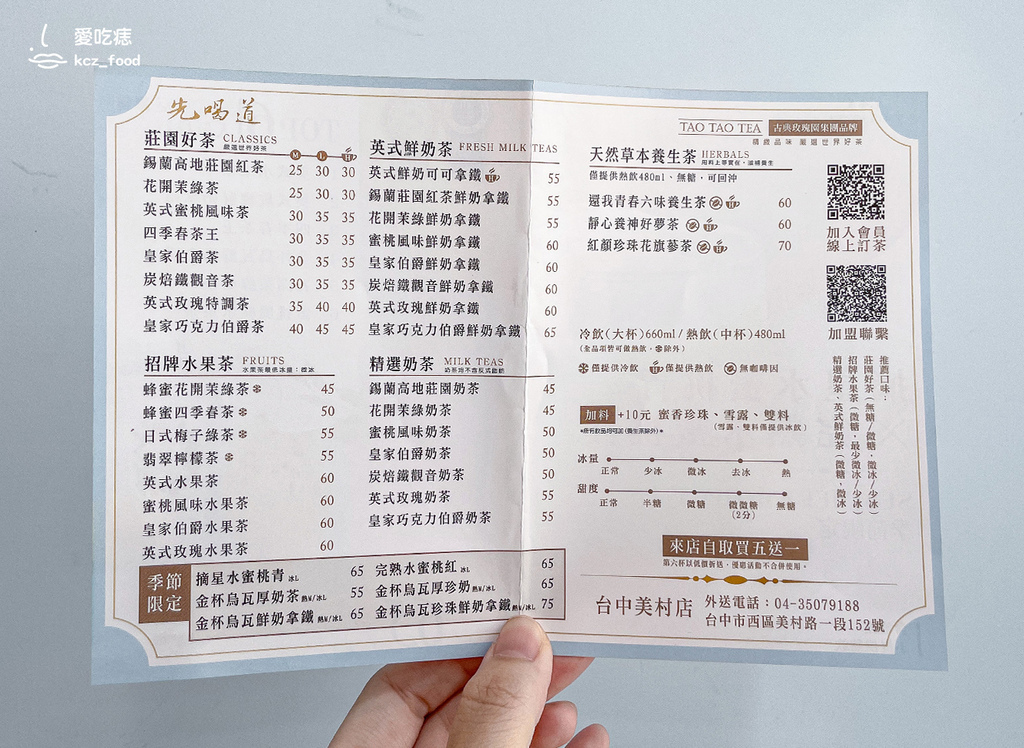 愛吃痣
kcz_food
先喝道
莊園好茶 CLASSICS
嚴選世界好茶
M L H
錫蘭高地莊園紅茶 25 30 30
花開茉綠茶 25 30 30
英式蜜桃風味茶 30 35 35
四季春茶王 30 35 35
皇家伯爵茶 30 35 35
炭焙鐵觀音茶 30 35 35
英式玫瑰特調茶 35 40 40
皇家巧克力伯爵茶 40 45 45
招牌水果茶 FRUITS
水果茶最低冰量：微冰
蜂蜜花開茉綠茶 45
蜂蜜四季春茶 50
日式梅子綠茶 55
翡翠檸檬茶 55
英式水果茶 60
蜜桃風味水果茶 60
皇家伯爵水果茶 60
英式玫瑰水果茶 60
英式鮮奶茶 FRESH MILK TEAS
英式鮮奶可可拿鐵 H 55
錫蘭莊園紅茶鮮奶拿鐵 55
花開茉綠鮮奶拿鐵 55
蜜桃風味鮮奶拿鐵 60
皇家伯爵鮮奶拿鐵 60
炭焙鐵觀音鮮奶拿鐵 60
英式玫瑰鮮奶拿鐵 60
皇家巧克力伯爵鮮奶拿鐵 65
精選奶茶 MILK TEAS
奶茶絕不含反式脂肪
錫蘭高地莊園奶茶 45
花開茉綠奶茶 45
蜜桃風味奶茶 50
皇家伯爵奶茶 50
炭焙鐵觀音奶茶 50
英式玫瑰奶茶 55
皇家巧克力伯爵奶茶 55
季節限定
摘星水蜜桃青 冰L 65
金杯烏瓦厚奶茶 熱M/冰L 55
金杯烏瓦鮮奶拿鐵 熱M/冰L 65
完熟水蜜桃紅 冰L 65
金杯烏瓦厚珍奶 熱M/冰L 65
金杯烏瓦珍珠鮮奶拿鐵 熱M/冰L 75
TAO TAO TEA 古典玫瑰園集團品牌
精緻品味 嚴選世界好茶
天然草本養生茶 HERBALS
僅提供熱飲480ml、無糖，可回沖
還我青春六味養生茶 H 60
靜心養神好夢茶 H 60
紅顏珍珠花旗蔘茶 H 70
加入會員
線上訂茶
加盟聯繫
冷飲(大杯)660ml / 熱飲(中杯)480ml
(全品項皆可做熱飲，除外)
僅提供冷飲 H 僅提供熱飲 無咖啡因
加料 +10元 蜜香珍珠、雪露、雙料
(雪露、雙料僅提供冰飲)
*所有飲品均可加(養生茶除外)*
冰量
正常 少冰 微冰 去冰 熱
甜度
正常 半糖 微糖 微微糖(2分) 無糖
推薦口味：
莊園好茶（無糖/微糖，微冰/少冰）
招牌水果茶（微糖，最少微冰/少冰）
精選奶茶、英式鮮奶茶（微糖，微冰）
來店自取買五送一
第六杯以低價折送，優惠活動不合併使用。
台中美村店
外送電話：04-35079188
台中市西區美村路一段152號